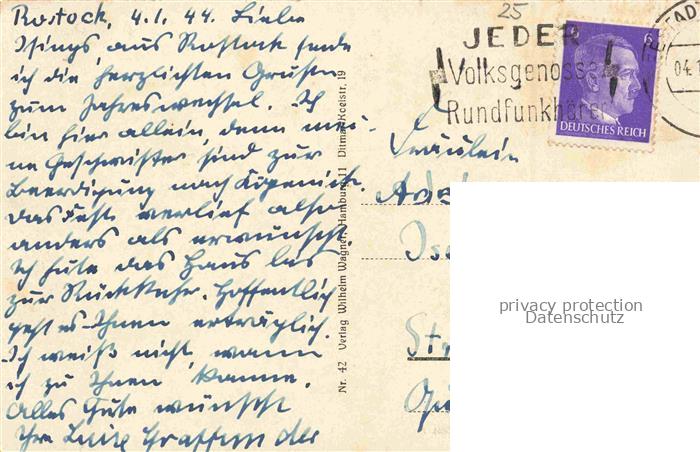 Rostock, 4.1.44. Liebe
Isings, aus Rostock sende
ich die herzlichsten Grüße
zum Jahreswechsel. Ich
bin hier allein, denn mei-
ne Geschwister sind zur
Beerdigung nach Köpenick.
Das Fest verlief also
anders als erwünscht.
Ich hüte das Haus bis
zur Rückkehr. Hoffentlich
geht es Ihnen erträglich.
Ich weiß nicht, wann
ich zu Ihnen komme.
Alles Gute wünscht
Ihre Luise
Nr. 42 Verlag Wilhelm Wagner, Hamburg 11 Ditmar Koelstr. 19
25
JEDER
Volksgenosse
Rundfunkhörer
6
DEUTSCHES REICH
04.1
Fräulein
privacy protection
Datenschutz